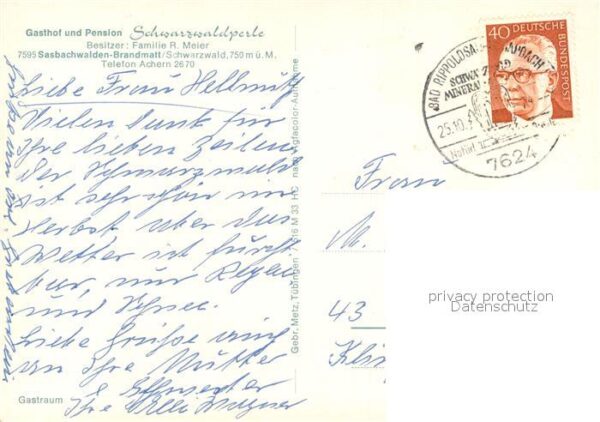 Gasthof und Pension Schwarzwaldperle
Besitzer: Familie R. Meier
7595 Sasbachwalden-Brandmatt/Schwarzwald, 750 m ü. M.
Telefon Achern 2670
Liebe Frau Hellmuth
Vielen Dank für
Ihre lieben Zeilen
der Schwarzwald
ist sehr schön im
Herbst aber das
Wetter ist furcht
bar, nur Regen
und Schnee.
Liebe Grüße auch
an Ihre Mutter
& Schwester
Ihre Willi Wagner
Gastraum
Gebr. Metz, Tübingen
M 33 HC
nach Agfacolor-Aufnahme
40 DEUTSCHE BUNDESPOST
BAD RIPPOLDSAU
MINERAL
25.10.
7624
Frau
M.
43
privacy protection
Datenschutz